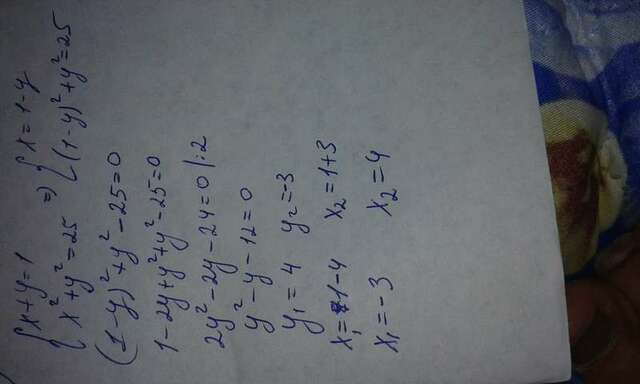 { x+y=1
x²+y²=25 => { x=1-y
(1-y)²+y²=25
(1-y)²+y²-25=0
1-2y+y²+y²-25=0
2y²-2y-24=0 |:2
y²-y-12=0
y₁=4 y₂=-3
x₁=1-4 x₂=1+3
x₁=-3 x₂=4